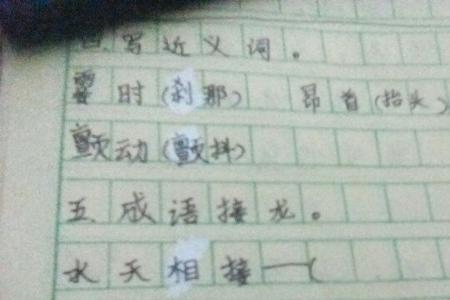 四、写近义词。
霎时(刹那) 昂首(抬头)
颤动(颤抖)
五、成语接龙。
水天相接——(